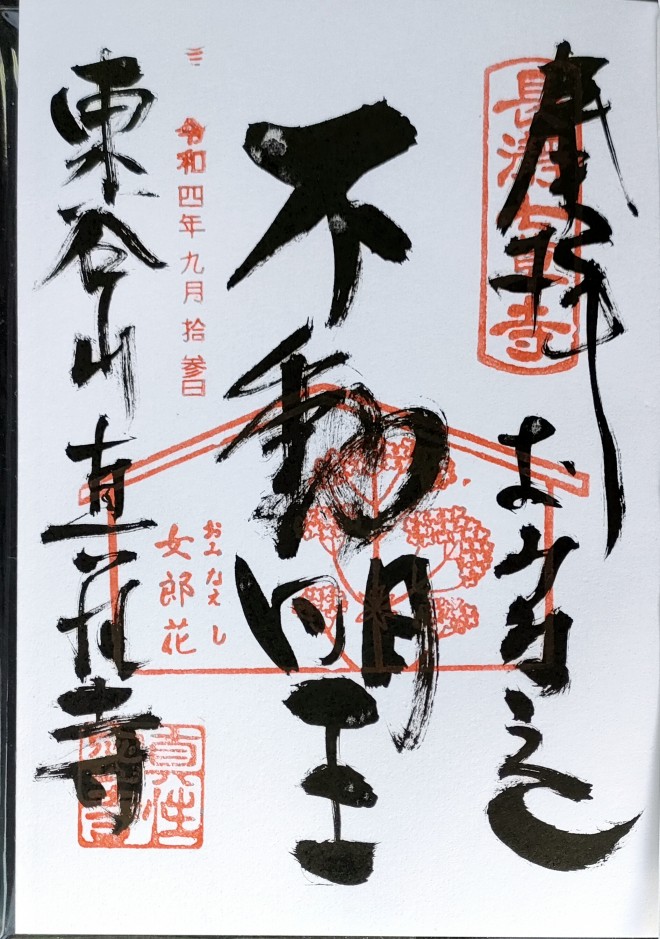 奉拝
長瀞七草寺
不動明王
おみなえし
女郎花
令和四年九月拾参日
東谷山 真性寺
真性